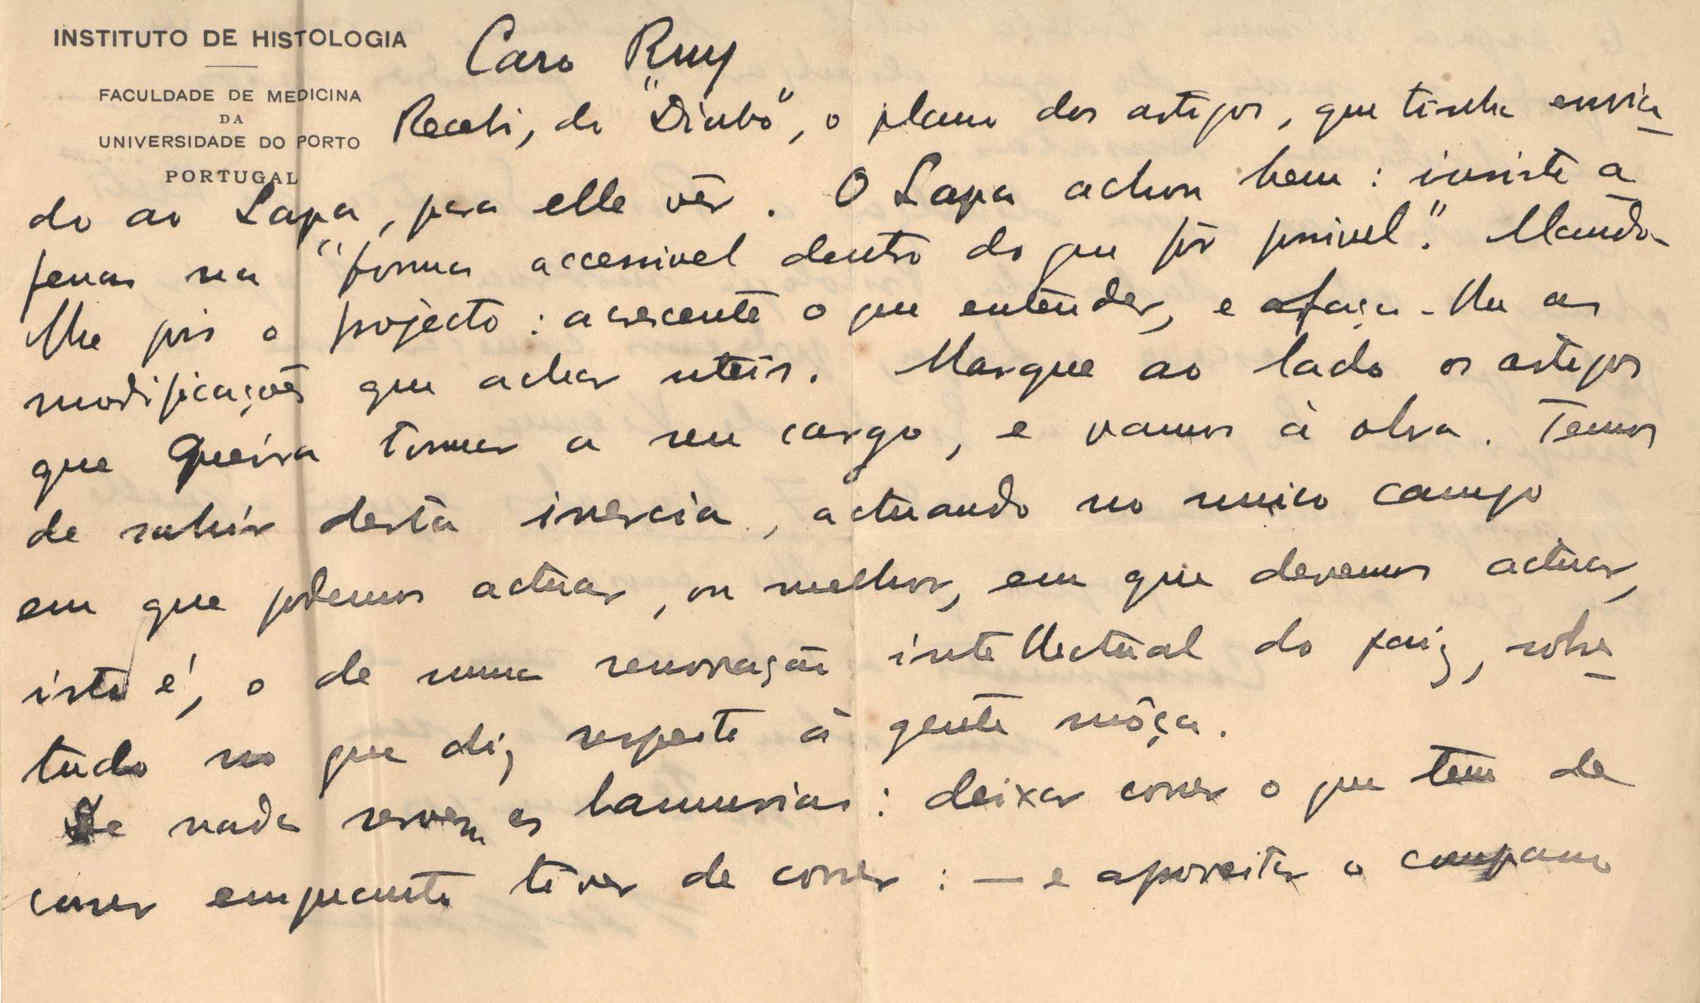 INSTITUTO DE HISTOLOGIA
FACULDADE DE MEDICINA
DA
UNIVERSIDADE DO PORTO
PORTUGAL
Caro Ruy
Recebi, do "Diabo", o plano dos artigos, que tinha envia-
do ao Lapa, para elle vêr. O Lapa achou bem: insiste a-
penas na "forma accessivel dentro do que fôr possivel". Mando-
lhe pois o projecto: acrescente o que entender, e faça-lhe as
modificações que achar uteis. Marque ao lado os artigos
que queira tomar a seu cargo, e vamos à obra. Temos
de sahir desta inercia, actuando no unico campo
em que podemos actuar, ou melhor, em que devemos actuar,
isto é, o de uma renovação intellectual do paiz, sobre-
tudo no que diz respeito à gente môça.
De nada servem as lamurias: deixar correr o que tem de
correr emquanto tiver de correr: — e aproveitar o